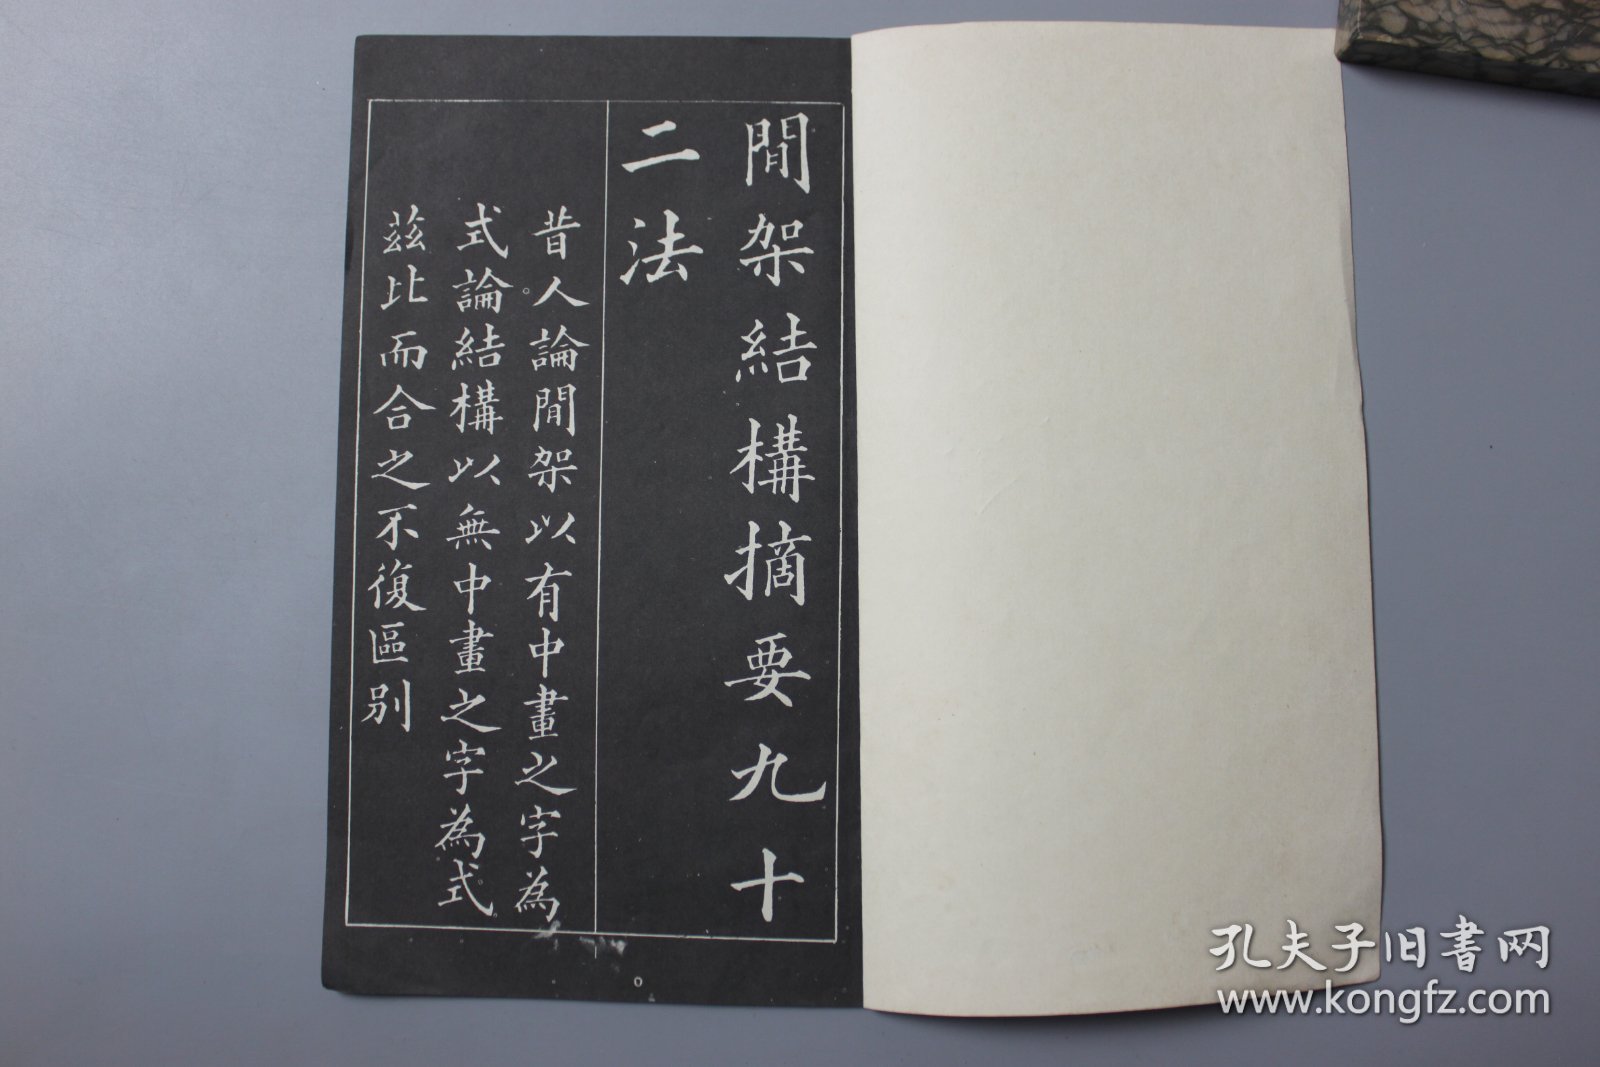 閒架結構摘要九十
二法
昔人論閒架以有中畫之字為
式。論結構以無中畫之字為式。
茲比而合之不復區别
0
孔夫子旧书网
www.kongfz.com